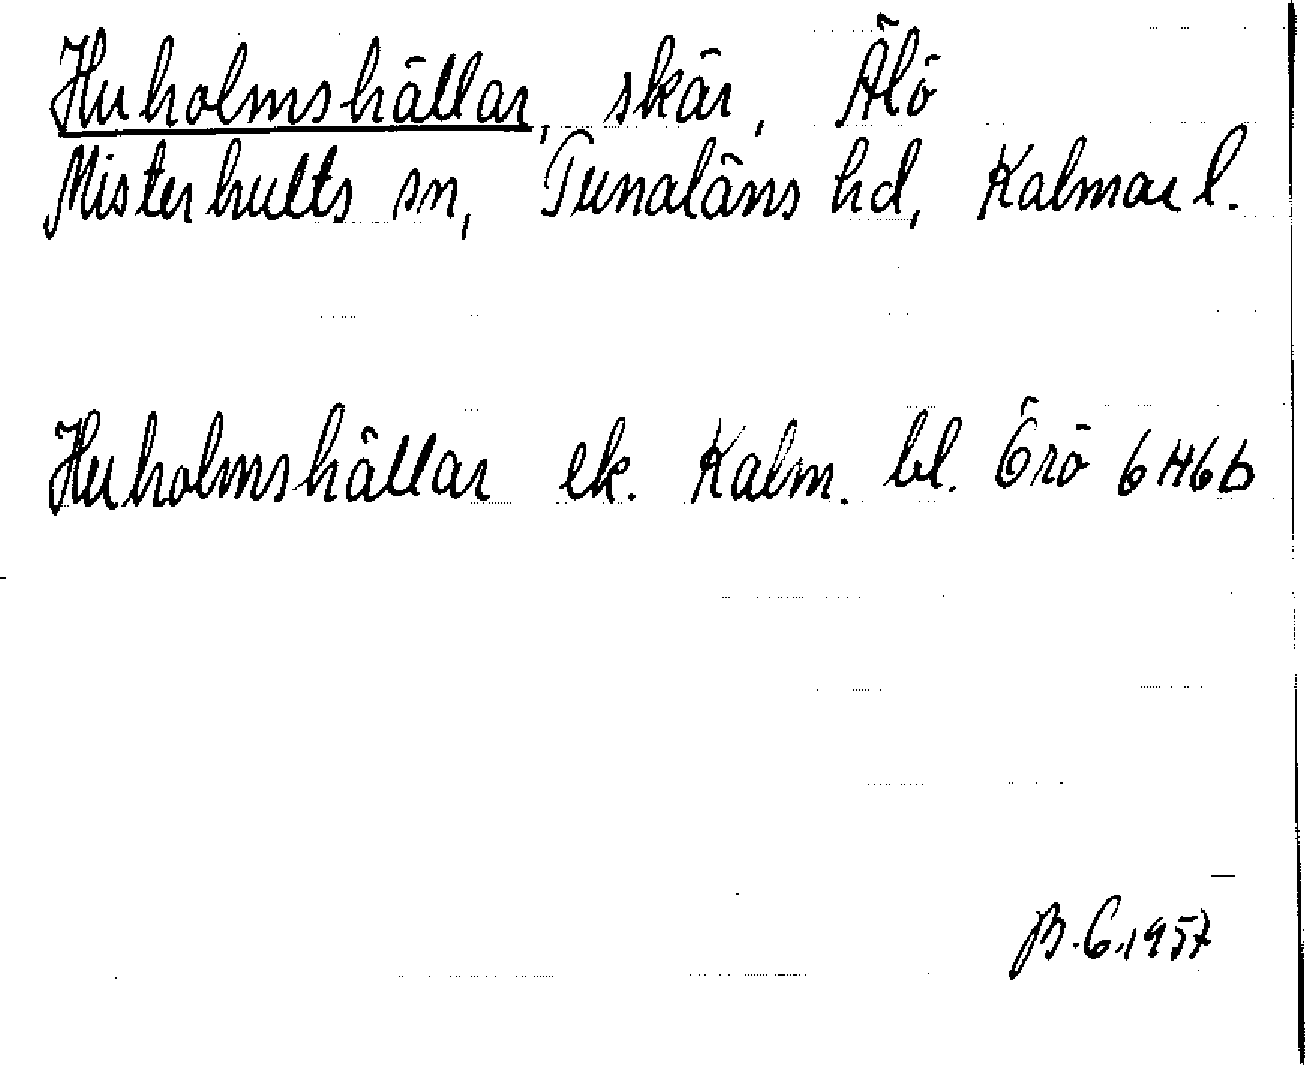 Huholmshällar, skär, Älö
Misterhults sn, Tunaläns hd, Kalmar l.
Huholmshällar ek. Kalm. bl. Örö 6H6b
B.G.1957